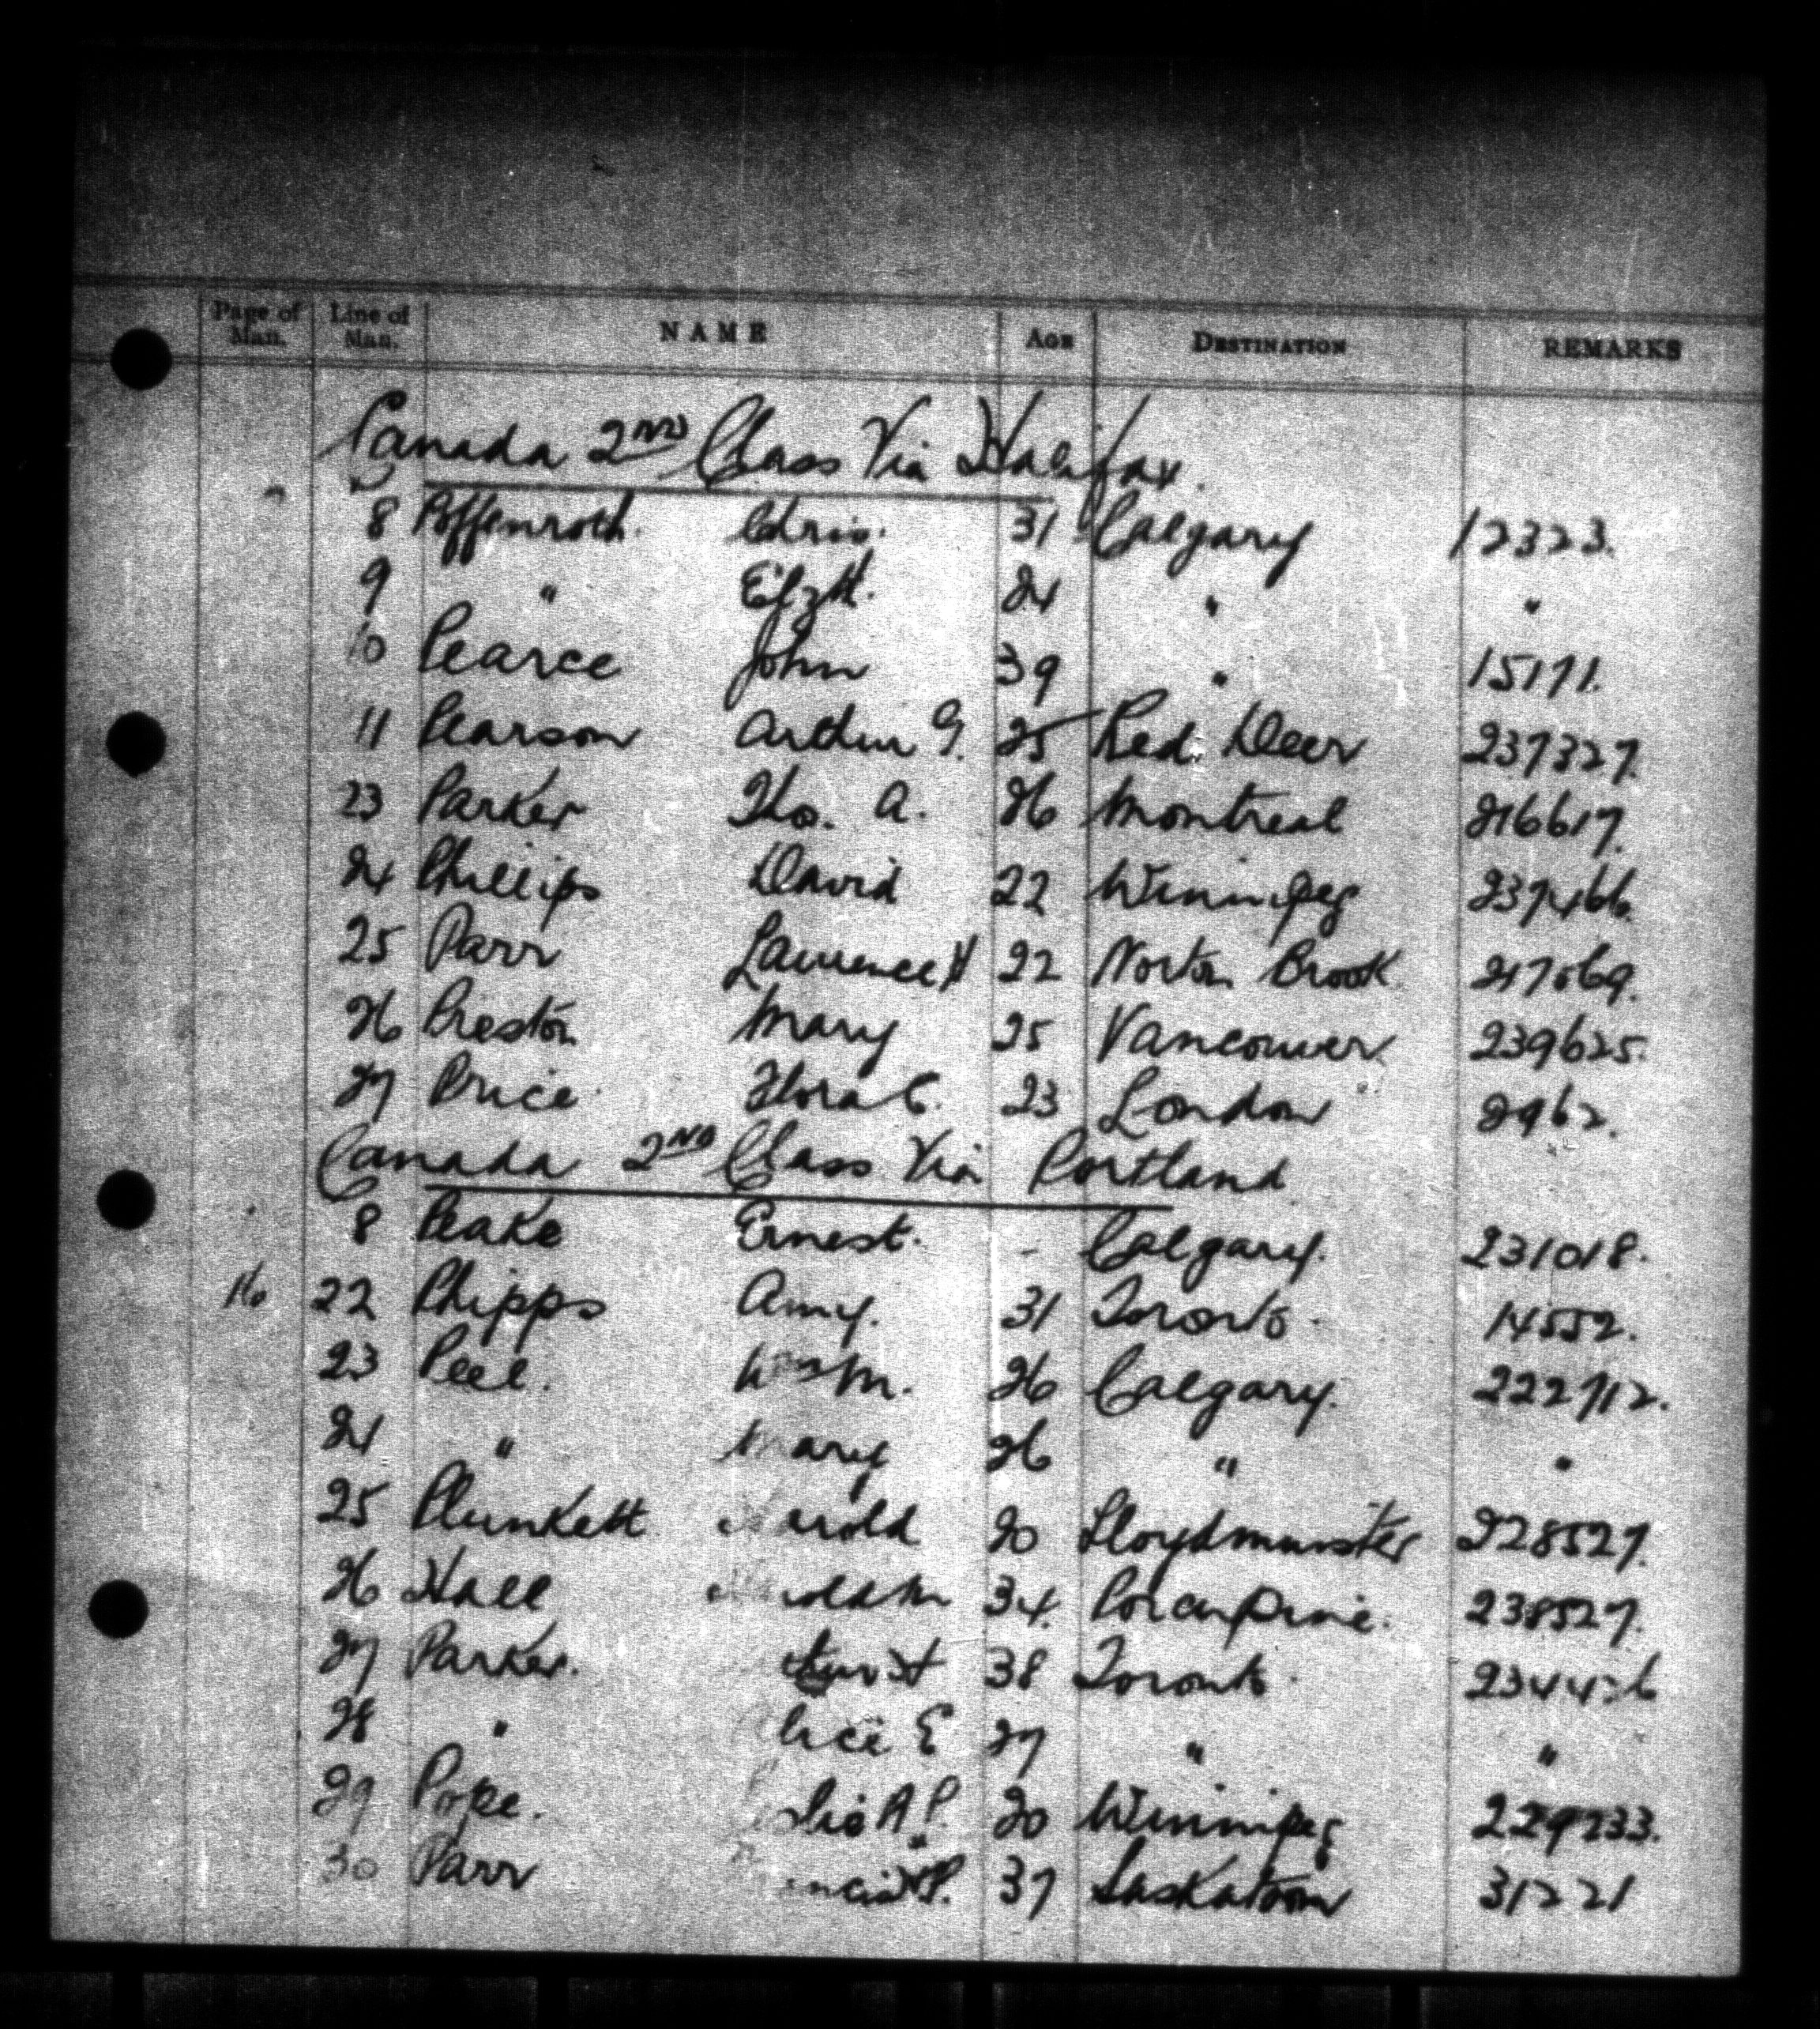 Page of Man. Line of Man. NAME AGE DESTINATION REMARKS
Canada 2nd Class Via Halifax.
8 Poffenroth. Chris. 31 Calgary 12323.
9 " Elzth. 24 " "
10 Pearce John 39 " 15171.
11 Pearson Arthur G. 25 Red Deer 237327.
23 Parker Tho. A. 26 Montreal 216617.
24 Phillips David 22 Winnipeg 237466.
25 Parr Laurence H 22 Norton Brook 217069.
26 Preston Mary 25 Vancouver 239625.
27 Price Flora C. 23 London 2962.
Canada 2nd Class Via Portland
8 Peake Ernest. - Calgary. 231018.
22 Phipps Amy. 31 Toronto. 14552.
23 Peel. Wm M. 26 Calgary. 222712.
24 " Mary 26 " "
25 Plunkett arold 20 Lloydminster 228527.
26 Hall 34. Porcupine. 238527.
27 Parker. 38 Toronto.
28 " lice E 27 " "
29 Pope. slie A P. 20 Winnipeg 229233.
30 Parr 37 Saskatoon 31221